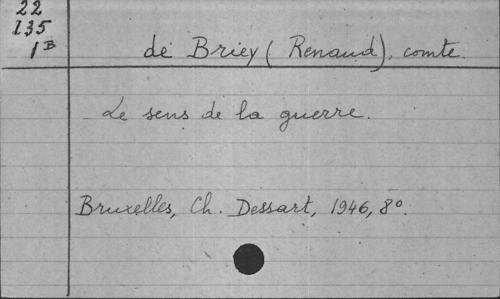 22
135
1B
de Briey (Renaud), comte.
Le sens de la guerre.
Bruxelles, Ch. Dessart, 1946, 8°.